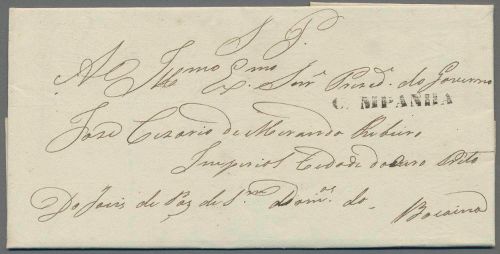 S. P.
Ao Illmo Exmo Senr Presde do Governo
C. MPANHA
José Cezario de Miranda Ribeiro
Imperial Cidade do Ouro Preto
Do Juiz de Paz de S. Domos do Bocaina